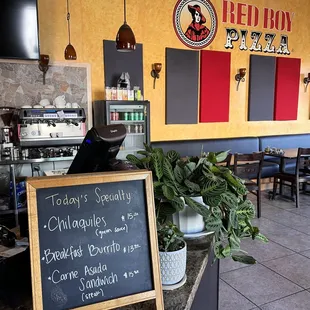 RED BOY
PIZZA
Today's Specialty
• Chilaquiles $15.00
(green sauce)
• Breakfast Burrito $13.00
• Carne Asada
Sandwich $15.00
(steak)